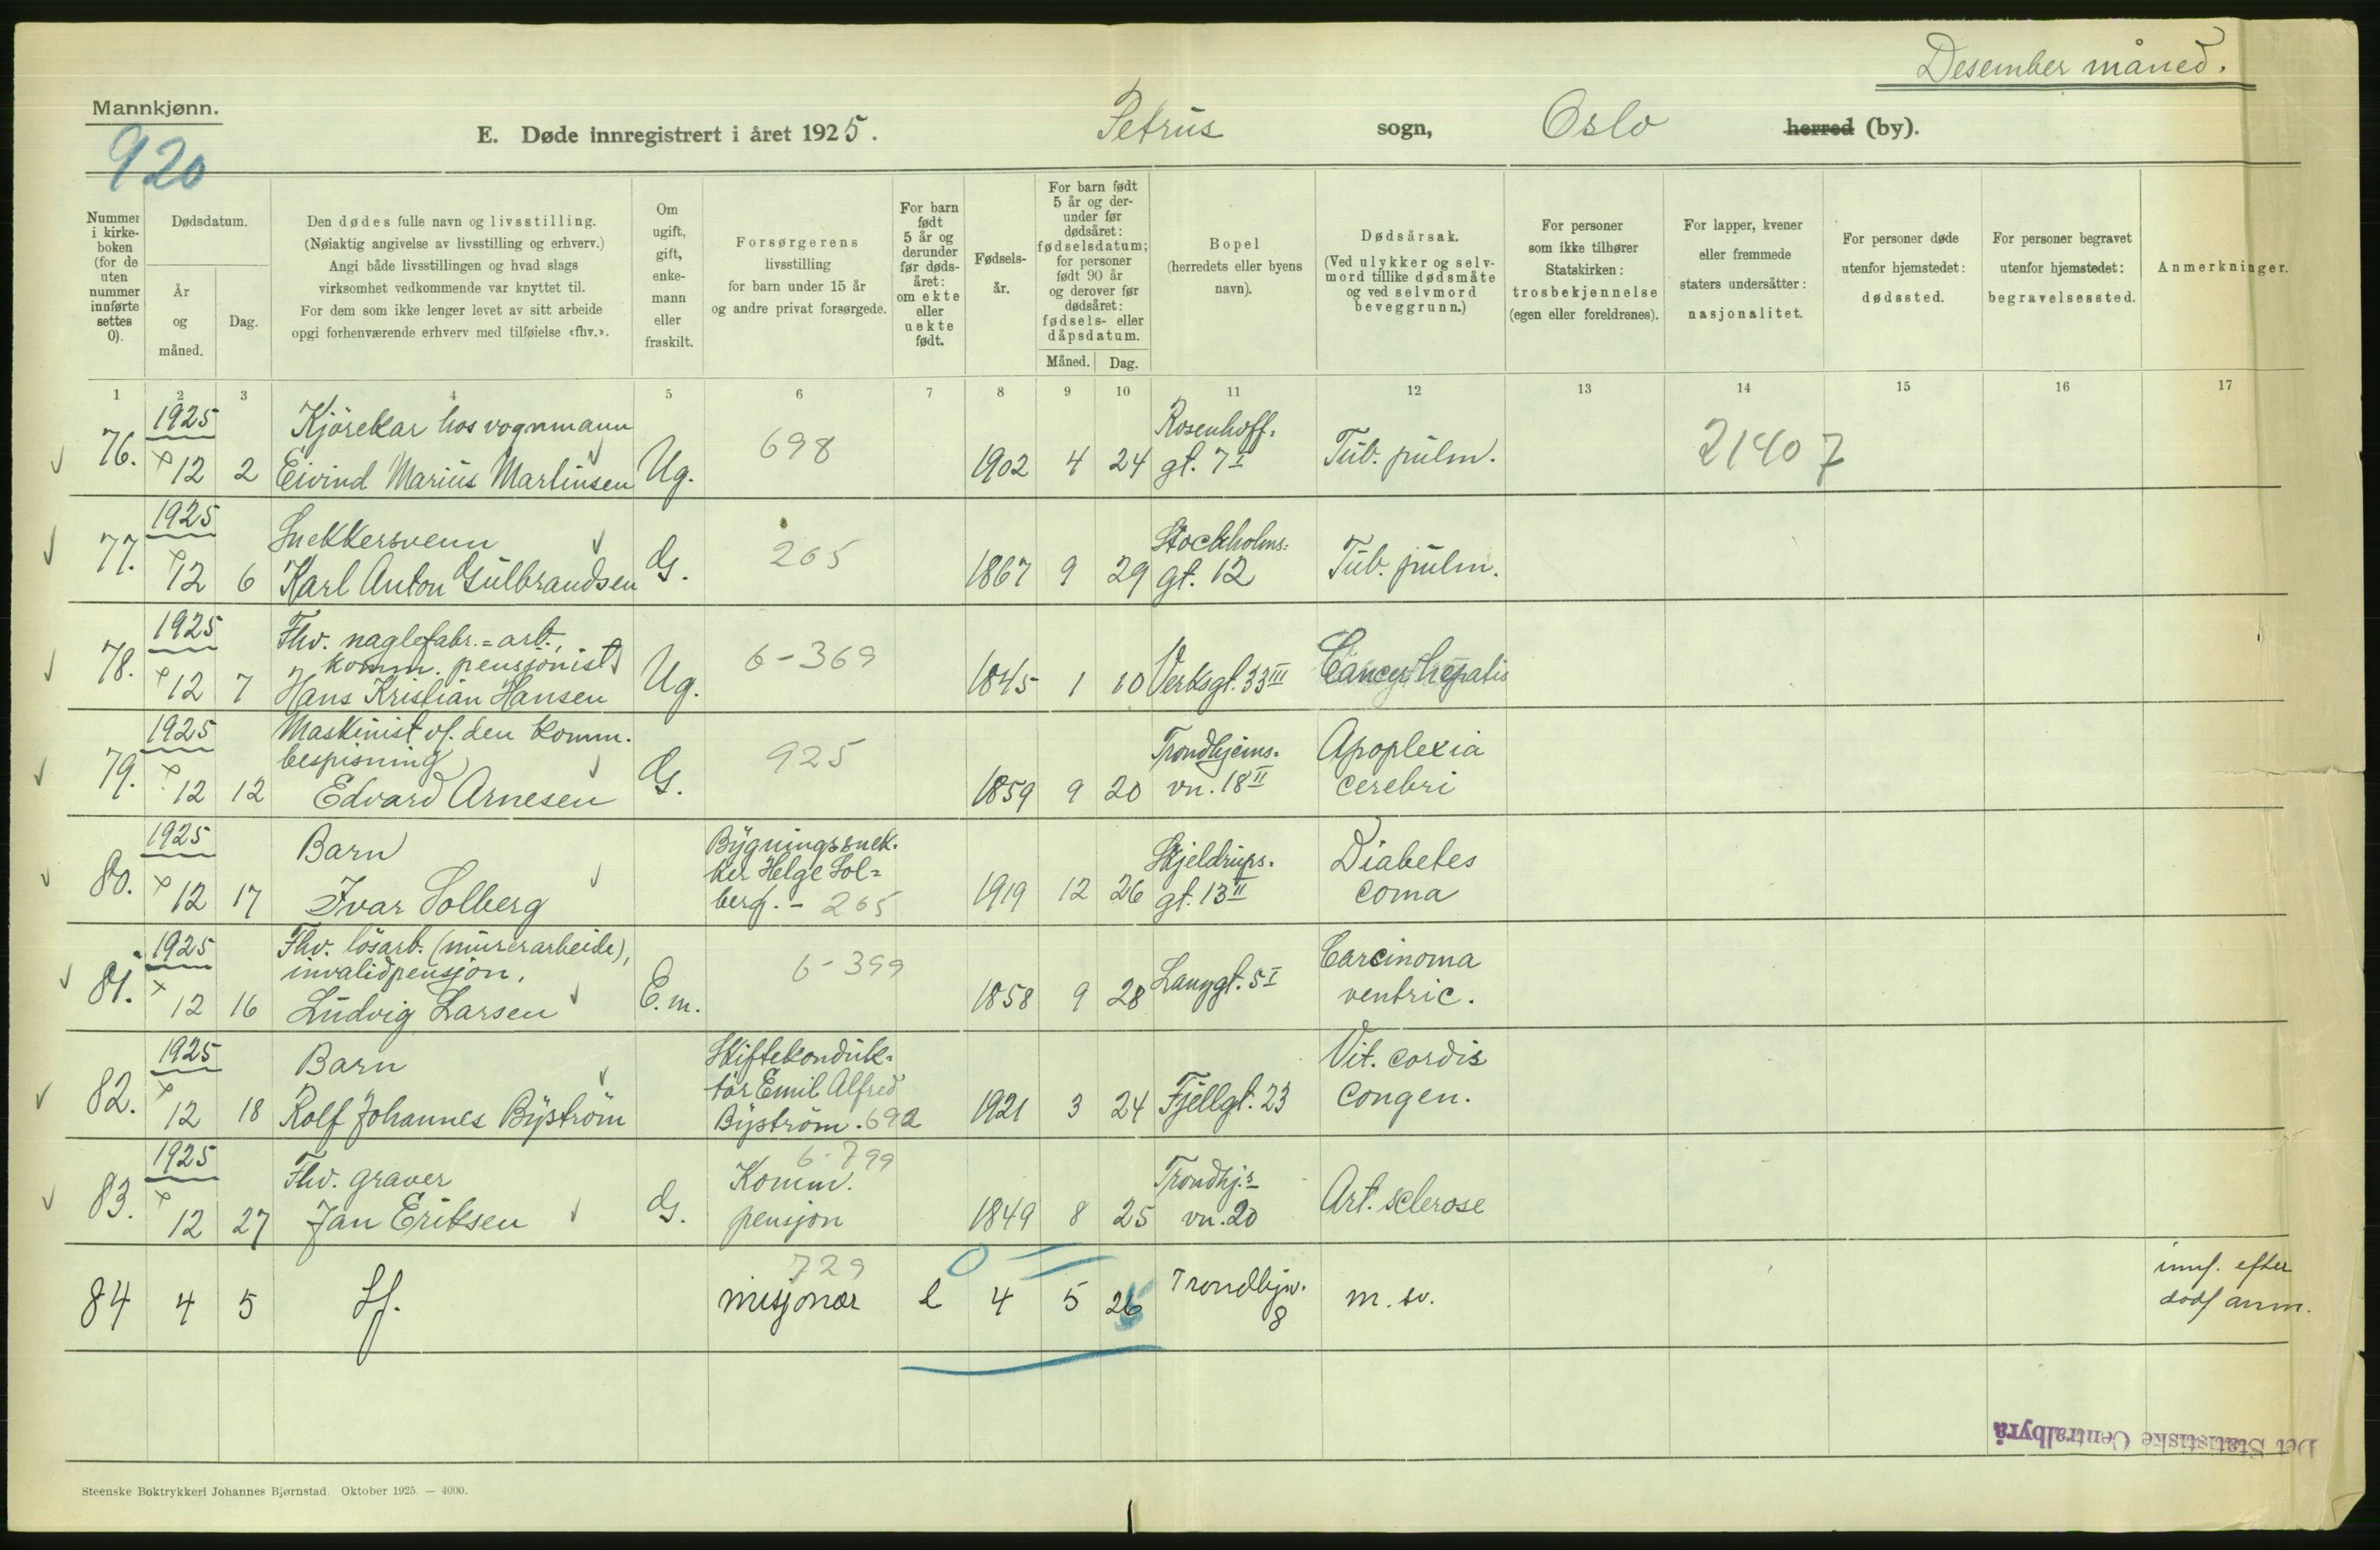 Desember måned.
Mannkjønn.
920
E. Døde innregistrert i året 1925. Petrus sogn, Oslo herred (by).
Nummer i kirkeboken (for de uten nummer innførte settes 0).
Dødsdatum.
År og måned.
Dag.
Den dødes fulle navn og livsstilling.
(Nøiaktig angivelse av livsstilling og erhverv.)
Angi både livsstillingen og hvad slags
virksomhet vedkommende var knyttet til.
For dem som ikke lenger levet av sitt arbeide
opgi forhenværende erhverv med tilføielse «fhv.».
Om ugift, gift, enkemann eller fraskilt.
Forsørgerens
livsstilling
for barn under 15 år
og andre privat forsørgede.
For barn født 5 år og derunder før dødsåret: om ekte eller uekte født.
Fødselsår.
For barn født 5 år og derunder før dødsåret: fødselsdatum; for personer født 90 år og derover før dødsåret: fødsels- eller dåpsdatum.
Måned. Dag.
Bopel
(herredets eller byens
navn).
Dødsårsak.
(Ved ulykker og selvmord tillike dødsmåte og ved selvmord beveggrunn.)
For personer
som ikke tilhører
Statskirken:
trosbekjennelse
(egen eller foreldrenes).
For lapper, kvener
eller fremmede
staters undersåtter:
nasjonalitet.
For personer døde
utenfor hjemstedet:
dødssted.
For personer begravet
utenfor hjemstedet:
begravelsessted.
Anmerkninger.
1 2 3 4 5 6 7 8 9 10 11 12 13 14 15 16 17
1925 Kjörekar hos vognmann Rosenhoff-
76. 12 2 Eivind Marius Martinsen Ug. 698 1902 4 24 gt. 7 I Tub. pulm. 21407
1925 Snekkersvenn Stockholms-
77. 12 6 Karl Anton Gulbrandsen G. 265 1867 9 29 gt. 12 Tub. pulm.
1925 Fhv. naglefabr.=arb.,
komm. pensjonist
78. 12 7 Hans Kristian Hansen Ug. 6-369 1845 1 10 Verksgt. 33 III Cancer hepatis
1925 Maskinist v/. den komm.
bespisning Trondhjems- Apoplexia
79. 12 12 Edvard Arnesen G. 925 1859 9 20 vn. 18 II cerebri
1925 Barn Bygningssnek-
ker Helge Sol= Skjeldrups- Diabetes
80. 12 17 Ivar Solberg berg. - 265 1919 12 26 gt. 13 II coma
1925 Fhv. lösarb. (murerarbeide),
invalidpensjon. Carcinoma
81. 12 16 Ludvig Larsen E.m. 6-399 1858 9 28 Langgt. 5 I ventric.
1925 Barn Skiftekonduk-
tör Emil Alfred Vit. cordis
82. 12 18 Rolf Johannes Byström Byström. 692 1921 3 24 Fjellgt. 23 congen.
1925 Fhv. graver 6-799
Komm. Trondhj.s
83. 12 27 Jan Eriksen G. pensjon 1849 8 25 vn. 20 Art. sclerose
729 0 innf. efter
84 4 5 misjonær e 4 5 26 Trondhjv. 8 m. sv. dødf anm.
Det Statistiske Centralbyrå
Steenske Boktrykkeri Johannes Bjørnstad. Oktober 1925. — 4000.